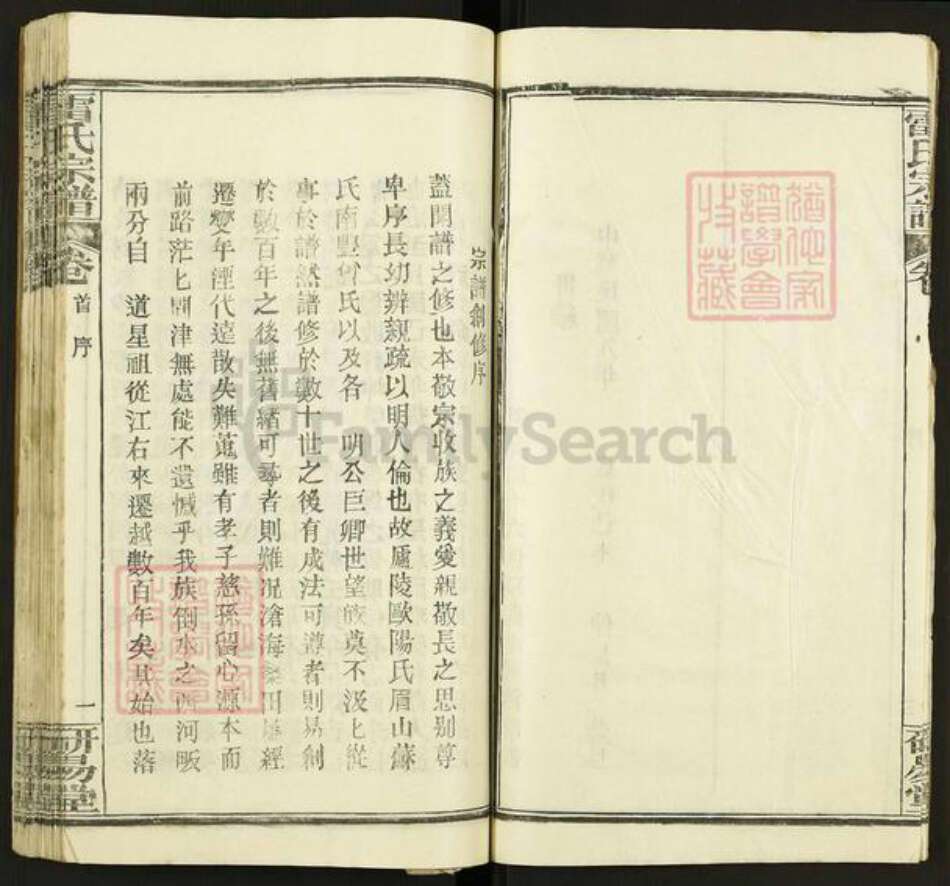 雷氏宗譜
卷
研易堂
猶他家
譜學會
收藏
宗譜創修序
蓋聞譜之修也本敬宗收族之義愛親敬長之思別尊
卑序長幼辨親疏以明人倫也故廬陵歐陽氏眉山蘇
氏南豐曾氏以及各 明公巨卿世望族莫不汲匕從
事於譜然譜修於數十世之後有成法可遵者則易創
於數百年之後無舊緒可尋者則難况滄海桑田屢經
遷變年湮代遠散失難蒐雖有孝子慈孫留心源本而
前路茫匕問津無處能不遺憾乎我族倒水之西河畈
兩分自 道星祖從江右來遷越數百年矣其始也落
雷氏宗譜
卷
首 序
一
研易堂
猶他家
譜學會
收藏
FamilySearch